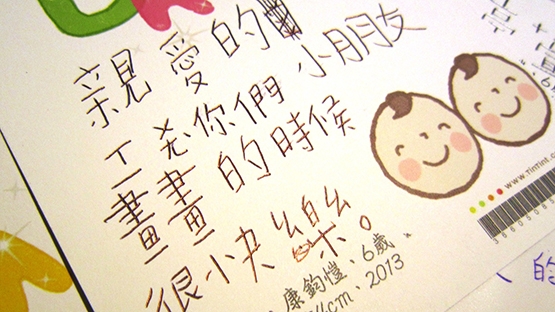 親愛的 小朋友
你們
畫畫的時候
很小快樂。
康鈞愷、6歲、
cm, 2013
www.TinTint.c
的